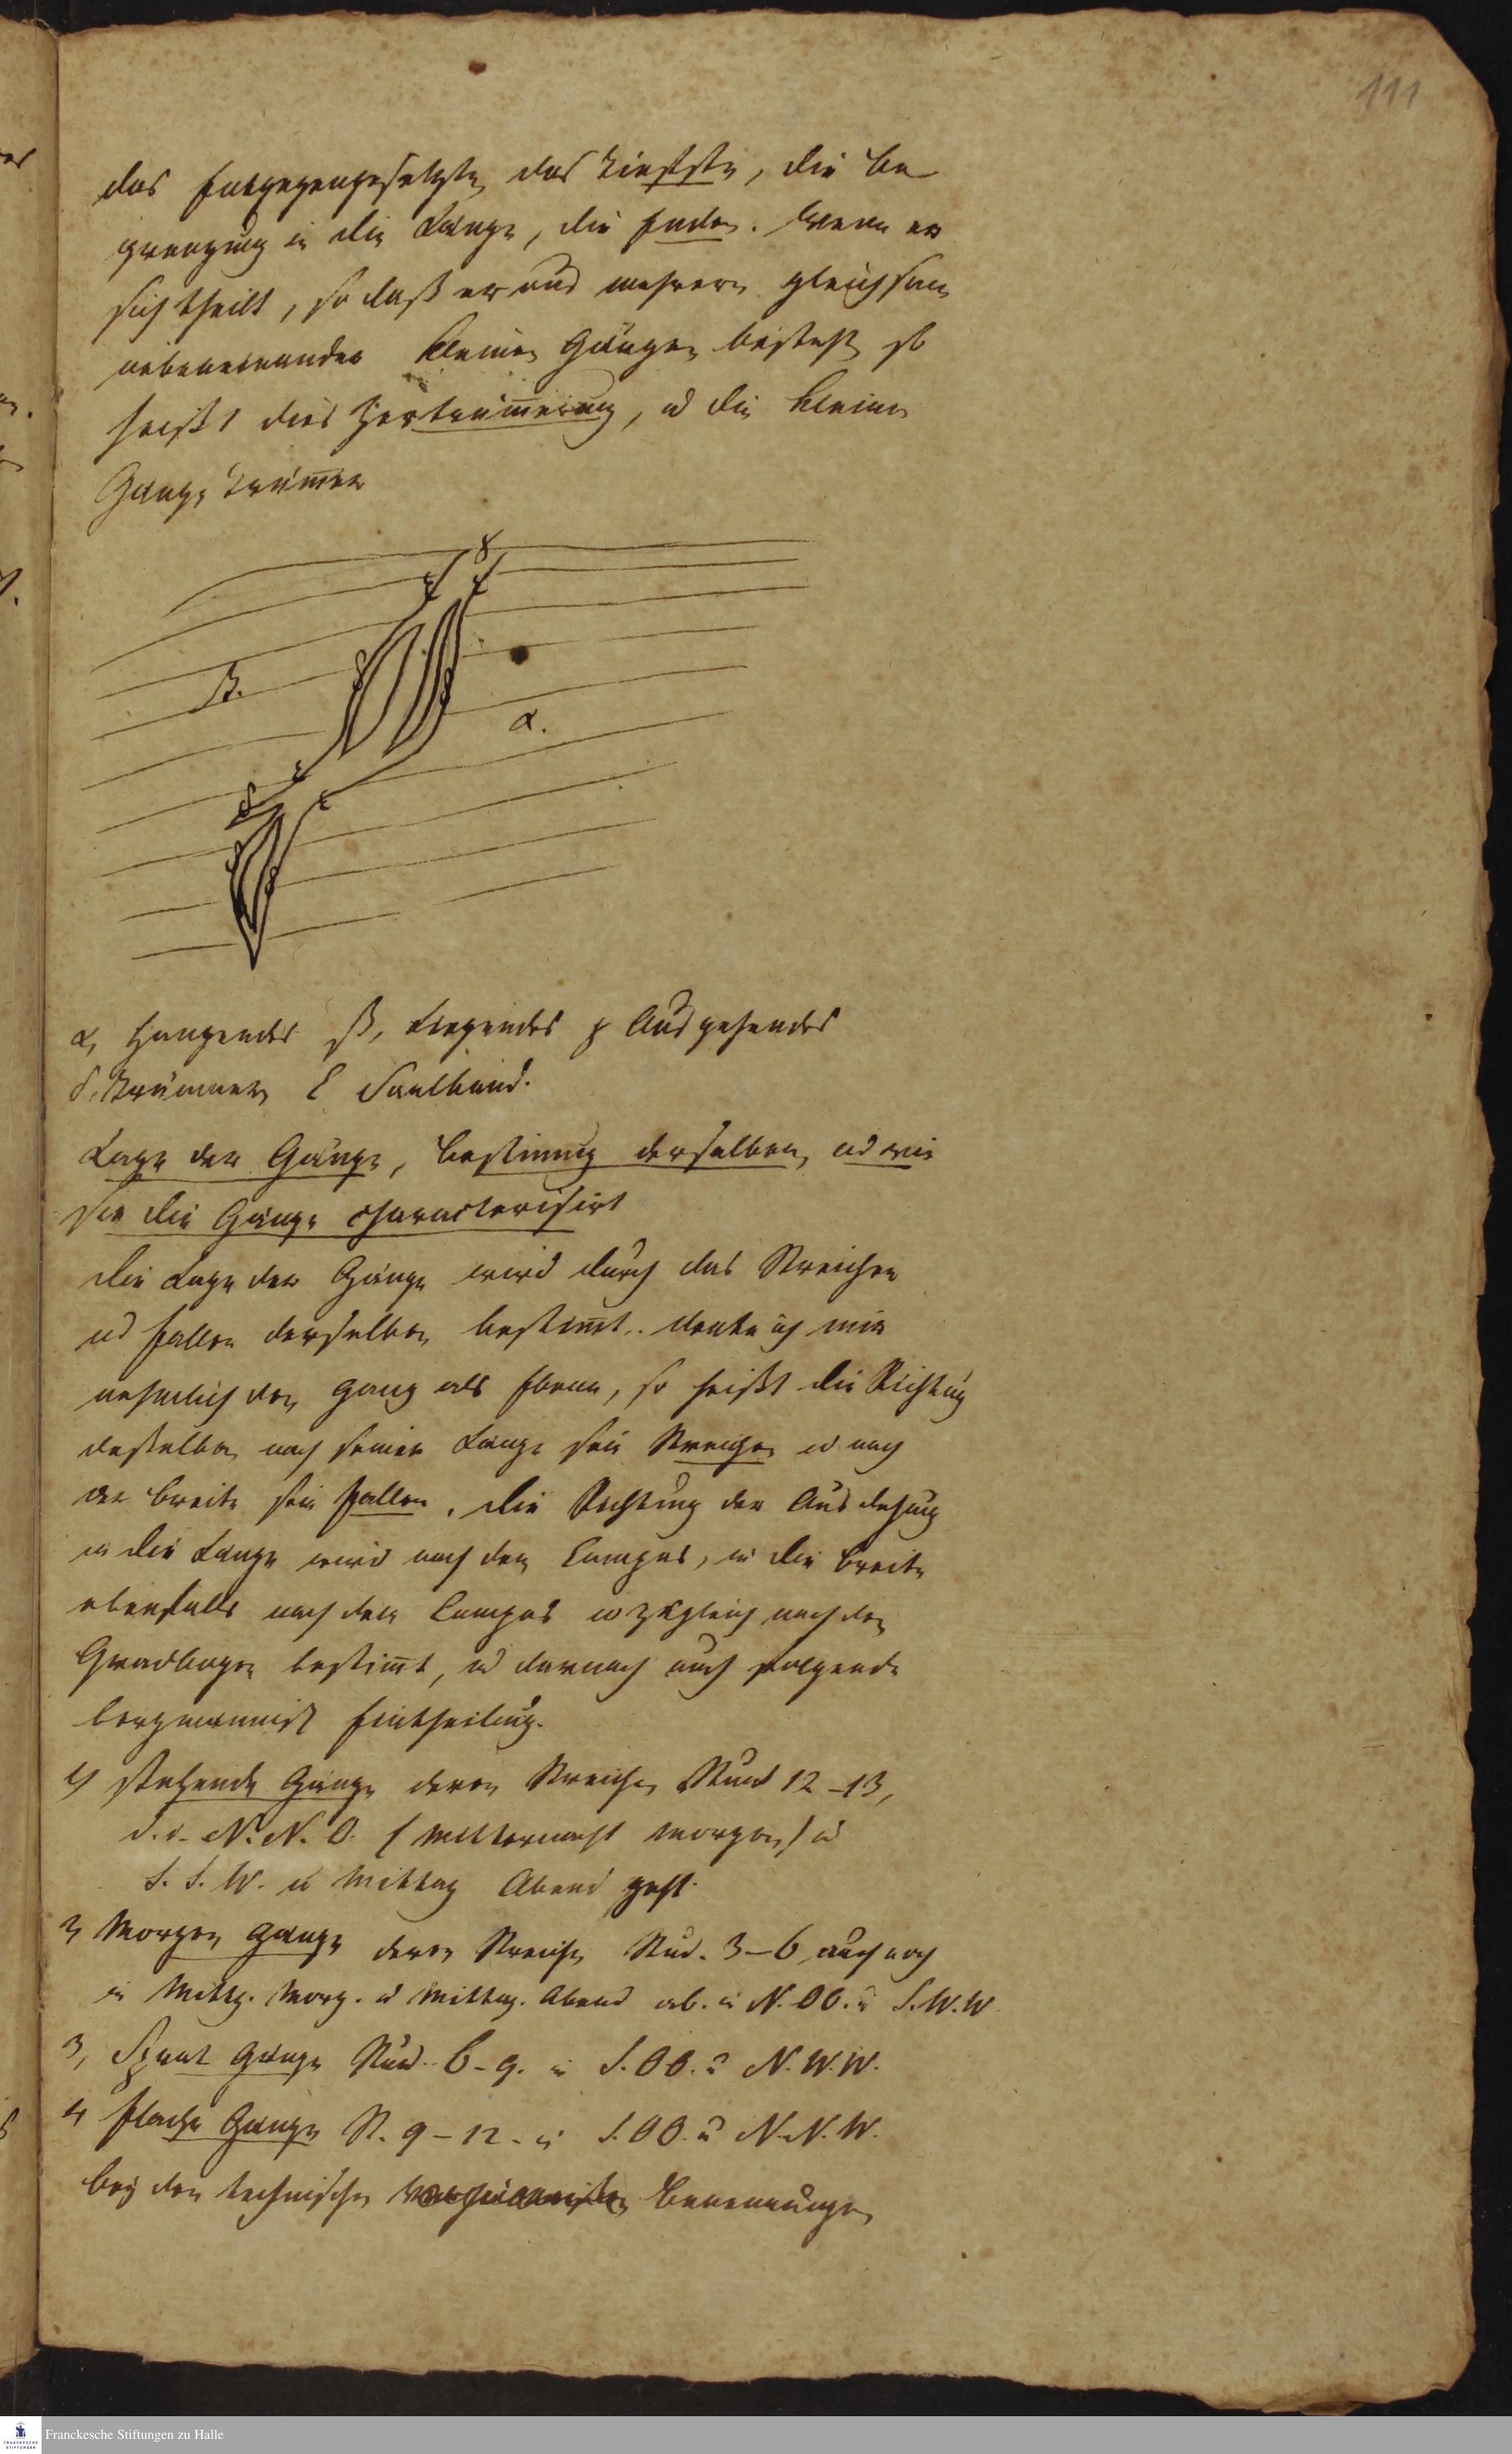 111
das Entgegengesetzte das Tiefste, die Be
grenzung in die Länge, die Enden. Wenn er
sich theilt, so daß er aus mehrern gleichsam
nebeneinander kleinen Gängen besteht so
heißt dies Zertrümerung, ud die kleinen
Gänge Trümer
γ
β.
α.
δ
α, Hangendes β, Liegendes γ Ausgehendes
δ. Trümmer, ε Saalband.
Lage der Gänge, Bestimug derselben, ud wie
sie die Gänge characterisirt
Die Lage der Gänge wird durch das Streichen
ud Fallen derselben bestimt. denke ich mir
nehmlich den Gang als Ebene, so heißt die Richtug
desselben nach seiner Länge sein Streichen ud nach
der Breite sein Fallen. Die Richtung der Ausdehnug
in die Länge wird nach dem Compas, in die Breite
ebenfalls nach dem Compas ud zugleich nach dem
Gradbogen bestimt, ud darnach auch folgende
bergmännisch Eintheilug.
1) stehende Gänge deren Streichen Stund 12-13,
d.i. N. N. O. (Mitternacht Morgen) ud
S. S. W. u Mittag Abend geht.
2, Morgen Gänge deren Streichen Stud. 3-6 auch noch
in Mittg. Morg. ud Mittag. Abend ab. in N. OO. u S. W. W.
3, Spaat Gänge Stud. 6-9. in S. OO. u N. W. W.
4 flache Gänge St. 9-12. in S. OO. u N. N. W.
bey den technischen Benennungen
Franckesche Stiftungen zu Halle